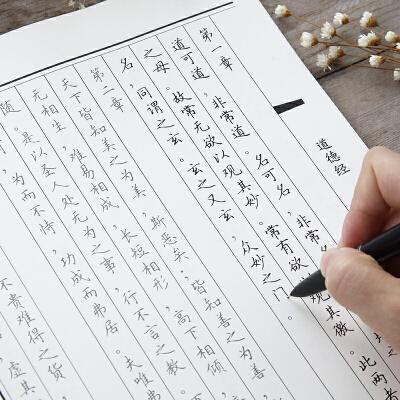 道德经
第一章
道可道，非常道。名可名，非常名
之母。故常无欲以观其妙。常有欲以观其徼。此两者
名，同谓之玄。玄之又玄，众妙之门。
第二章
天下皆知美之为美，斯恶矣，皆知善之为善
元相生，难易相成，长短相形，高下相倾
。是以圣人处元为之事，行不言之教
为而不恃，功成而弗居。夫唯弗
不贵难得之货
虚其